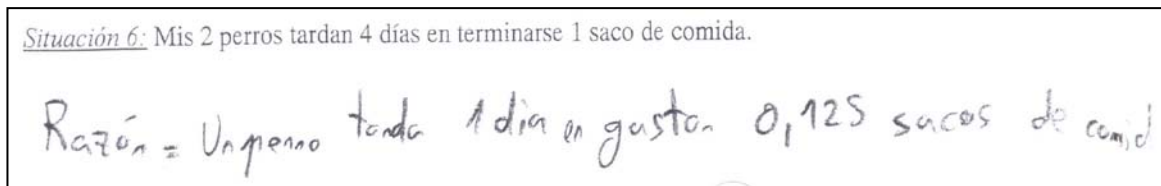 Situación 6: Mis 2 perros tardan 4 días en terminarse 1 saco de comida.
Razón = Un perro tarda 1 dia en gastar 0,125 sacos de comid